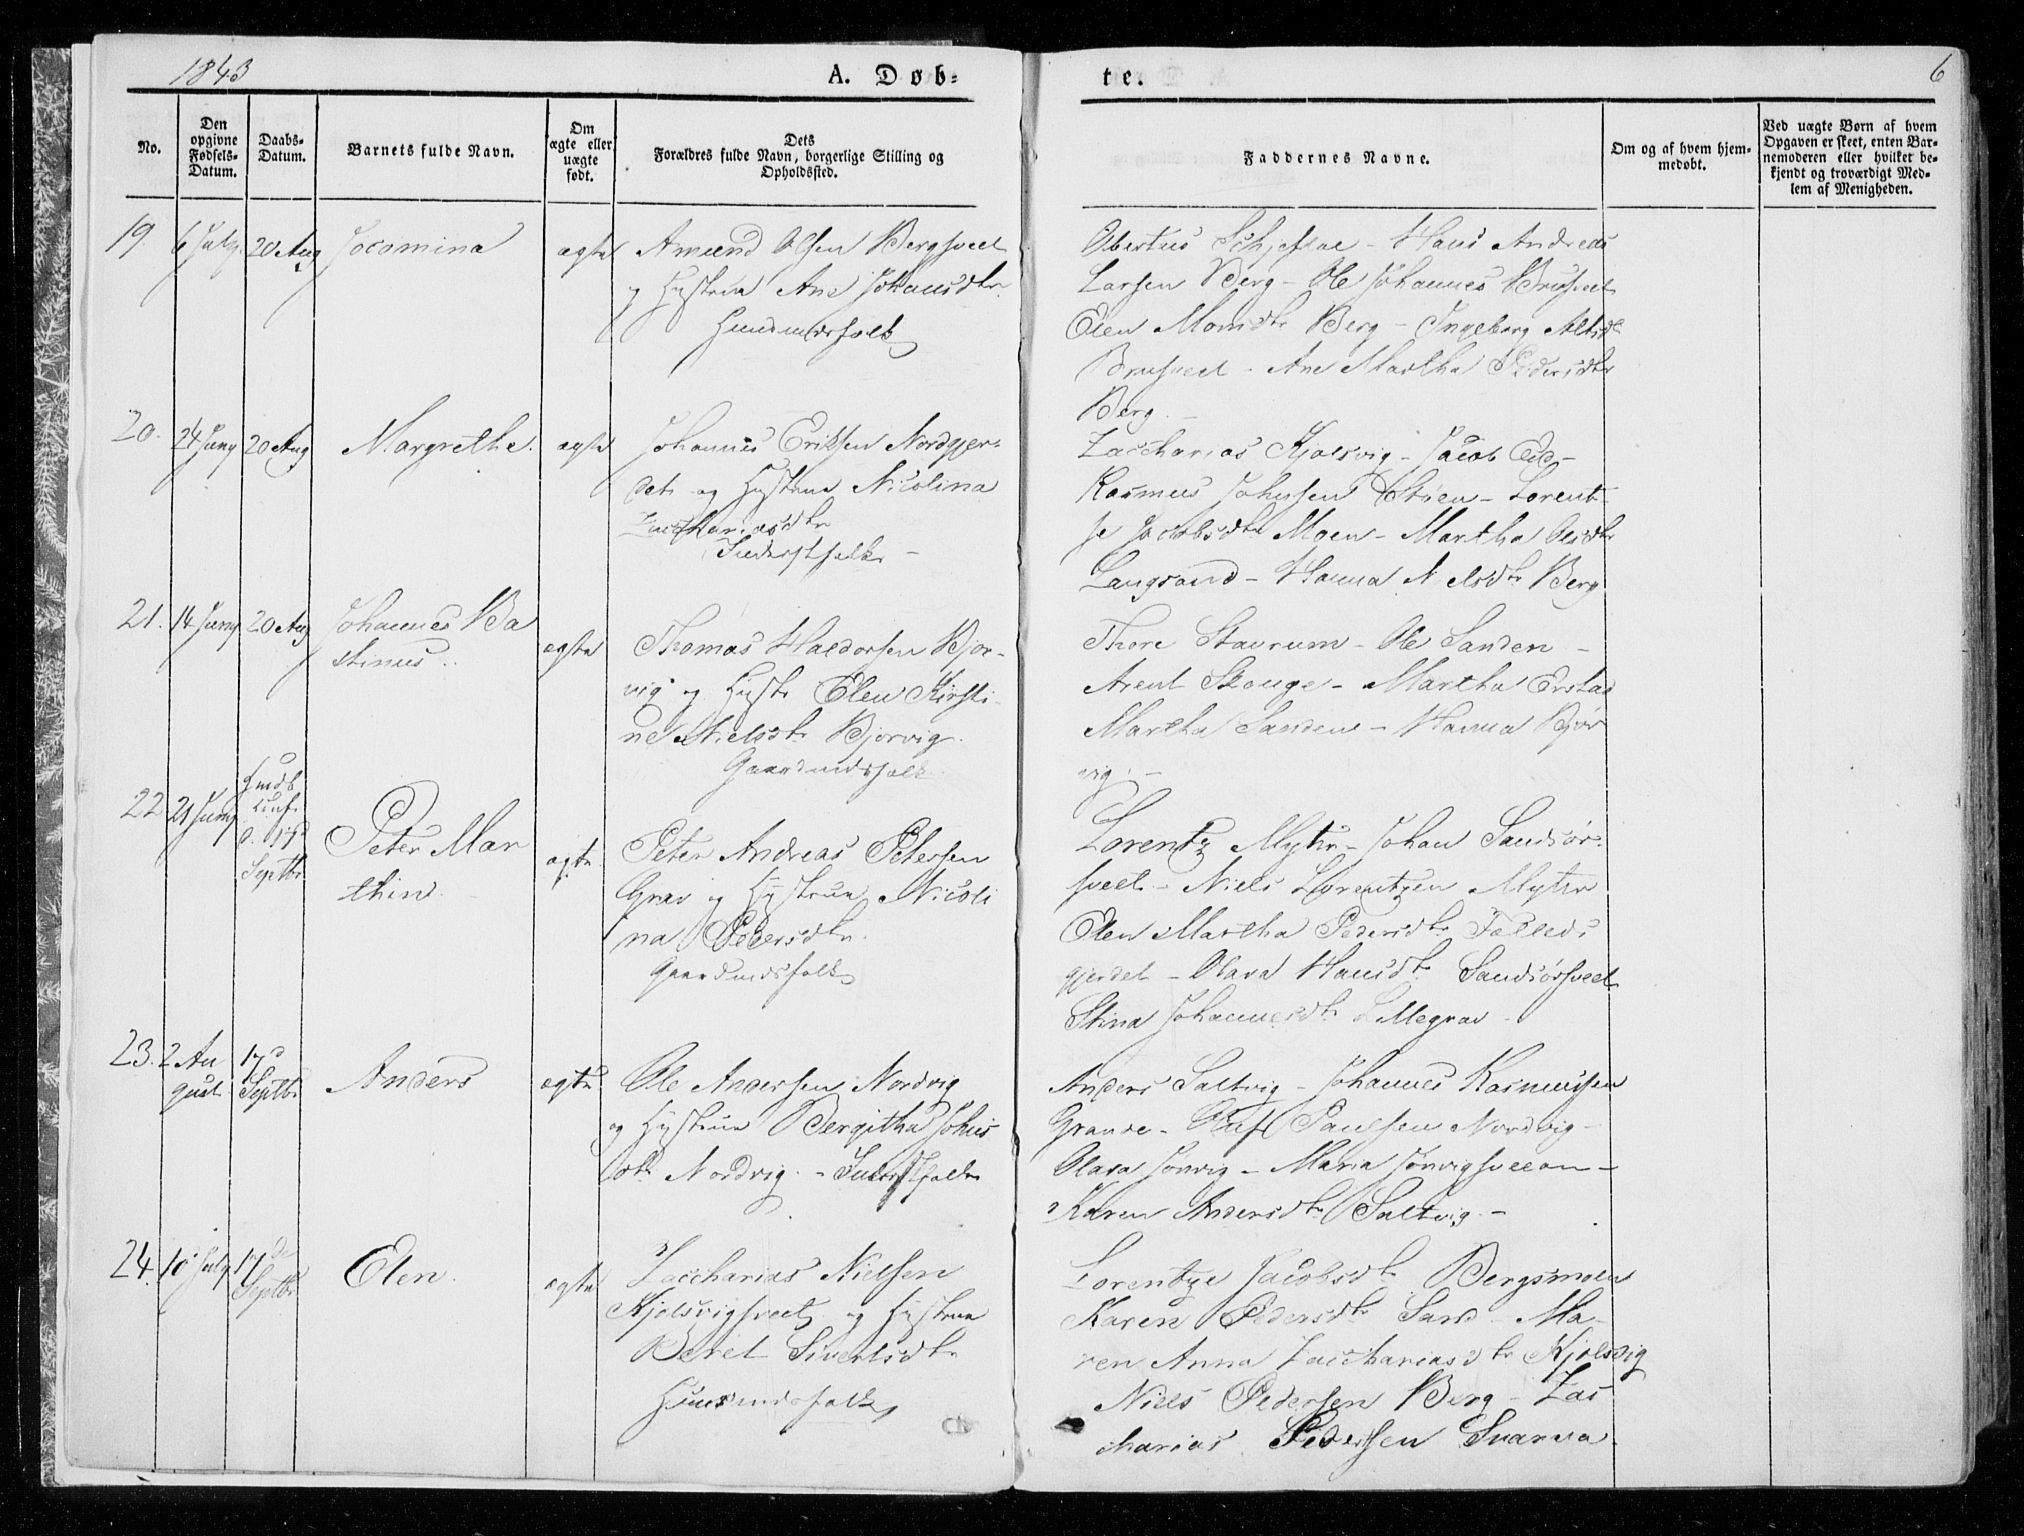 1843
A. Døb-
te.
6
No.
Den
opgivne
Fødsels-
Datum.
Daabs-
Datum.
Barnets fulde Navn.
Om
ægte eller
uægte
født.
Dets
Forældres fulde Navn, borgerlige Stilling og
Opholdssted.
Faddernes Navne.
Om og af hvem hjem-
medøbt.
Ved uægte Børn af hvem
Opgaven er skeet, enten Bar-
nemoderen eller hvilket be-
kjendt og troværdigt Med-
lem af Menigheden.
19.
6 July
20 Aug
Jocomina
ægte
Amund Olsen Bergsveet
og Hustrue Ane Johansdtr
Huusmdsfolk
Larsen Berg - Ole Johannes Brusveet
Elen Monsdtr Berg - Ingeborg
Brusveet - Ane Martha Pedersdtr
Berg.
20.
24 Juny
20 Aug
Margrethe.
ægte
Johannes Eriksen Nordgjer-
det og Hustrue Nicolina
Zacchariasdtr
Inderstfolk -
Zaccharias Kjølsvig - Jacob Eid -
Rasmus Johnsen Stien - Lorent-
se Jacobsdtr Moen - Martha Olsdtr
Langsand - Hanna Nielsdtr Berg
21.
14 Juny
20 Aug
Johannes Ba
stinus.
ægte
Thomas Haldorsen Bjør-
vig og Hustr Elen Kirsti-
ne Nielsdtr Bjørvig.
Gaardmdsfolk
Thore Stavrum - Ole Sanden -
Arent Skouge - Martha Erstad
Martha Sandene - Hanna Bjør
vig. -
22
21 Juny
Hmdb
Conf.
d. 17d
Septbr
Peter Mar
thin.
ægte
Peter Andreas Petersen
Grav og Hustrue Nicoli
na Pedersdtr.
Gaardmdsfolk
Lorentz Myhr - Johan Sandsør-
sveet - Niels Lorentzen Myhr
Elen Martha Pedersdtr
gjerdet - Olava Hansdtr Sandsørsveet
Stina Johannesdtr Lillegrav -
23.
2 Au
gust
17d
Septbr
Anders
ægte
Ole Andersen Nordvig
og Hustrue Bergitha Johns
dtr Nordvig. - Inderstfolk
Anders Saltvig - Johannes Rasmussen
Grande - Oluf Paulsen Nordvig -
Olava Jonvig - Maria Jonvigsveen -
Karen Andersdtr Saltvig. -
24.
10 July
17de
Septbr
Elen.
ægte
Zaccharias Nielsen
Kjølsvigsveet og Hustrue
Beret Sivertsdtr
Huusmdsfolk
Lorentze Jacobsdtr Bergsmoen
Karen Pedersdtr Sand - Ma-
ren Anna Zacchariasdtr Kjølsvig
Niels Pedersen Berg - Zac
charias Pedersen Svarva.